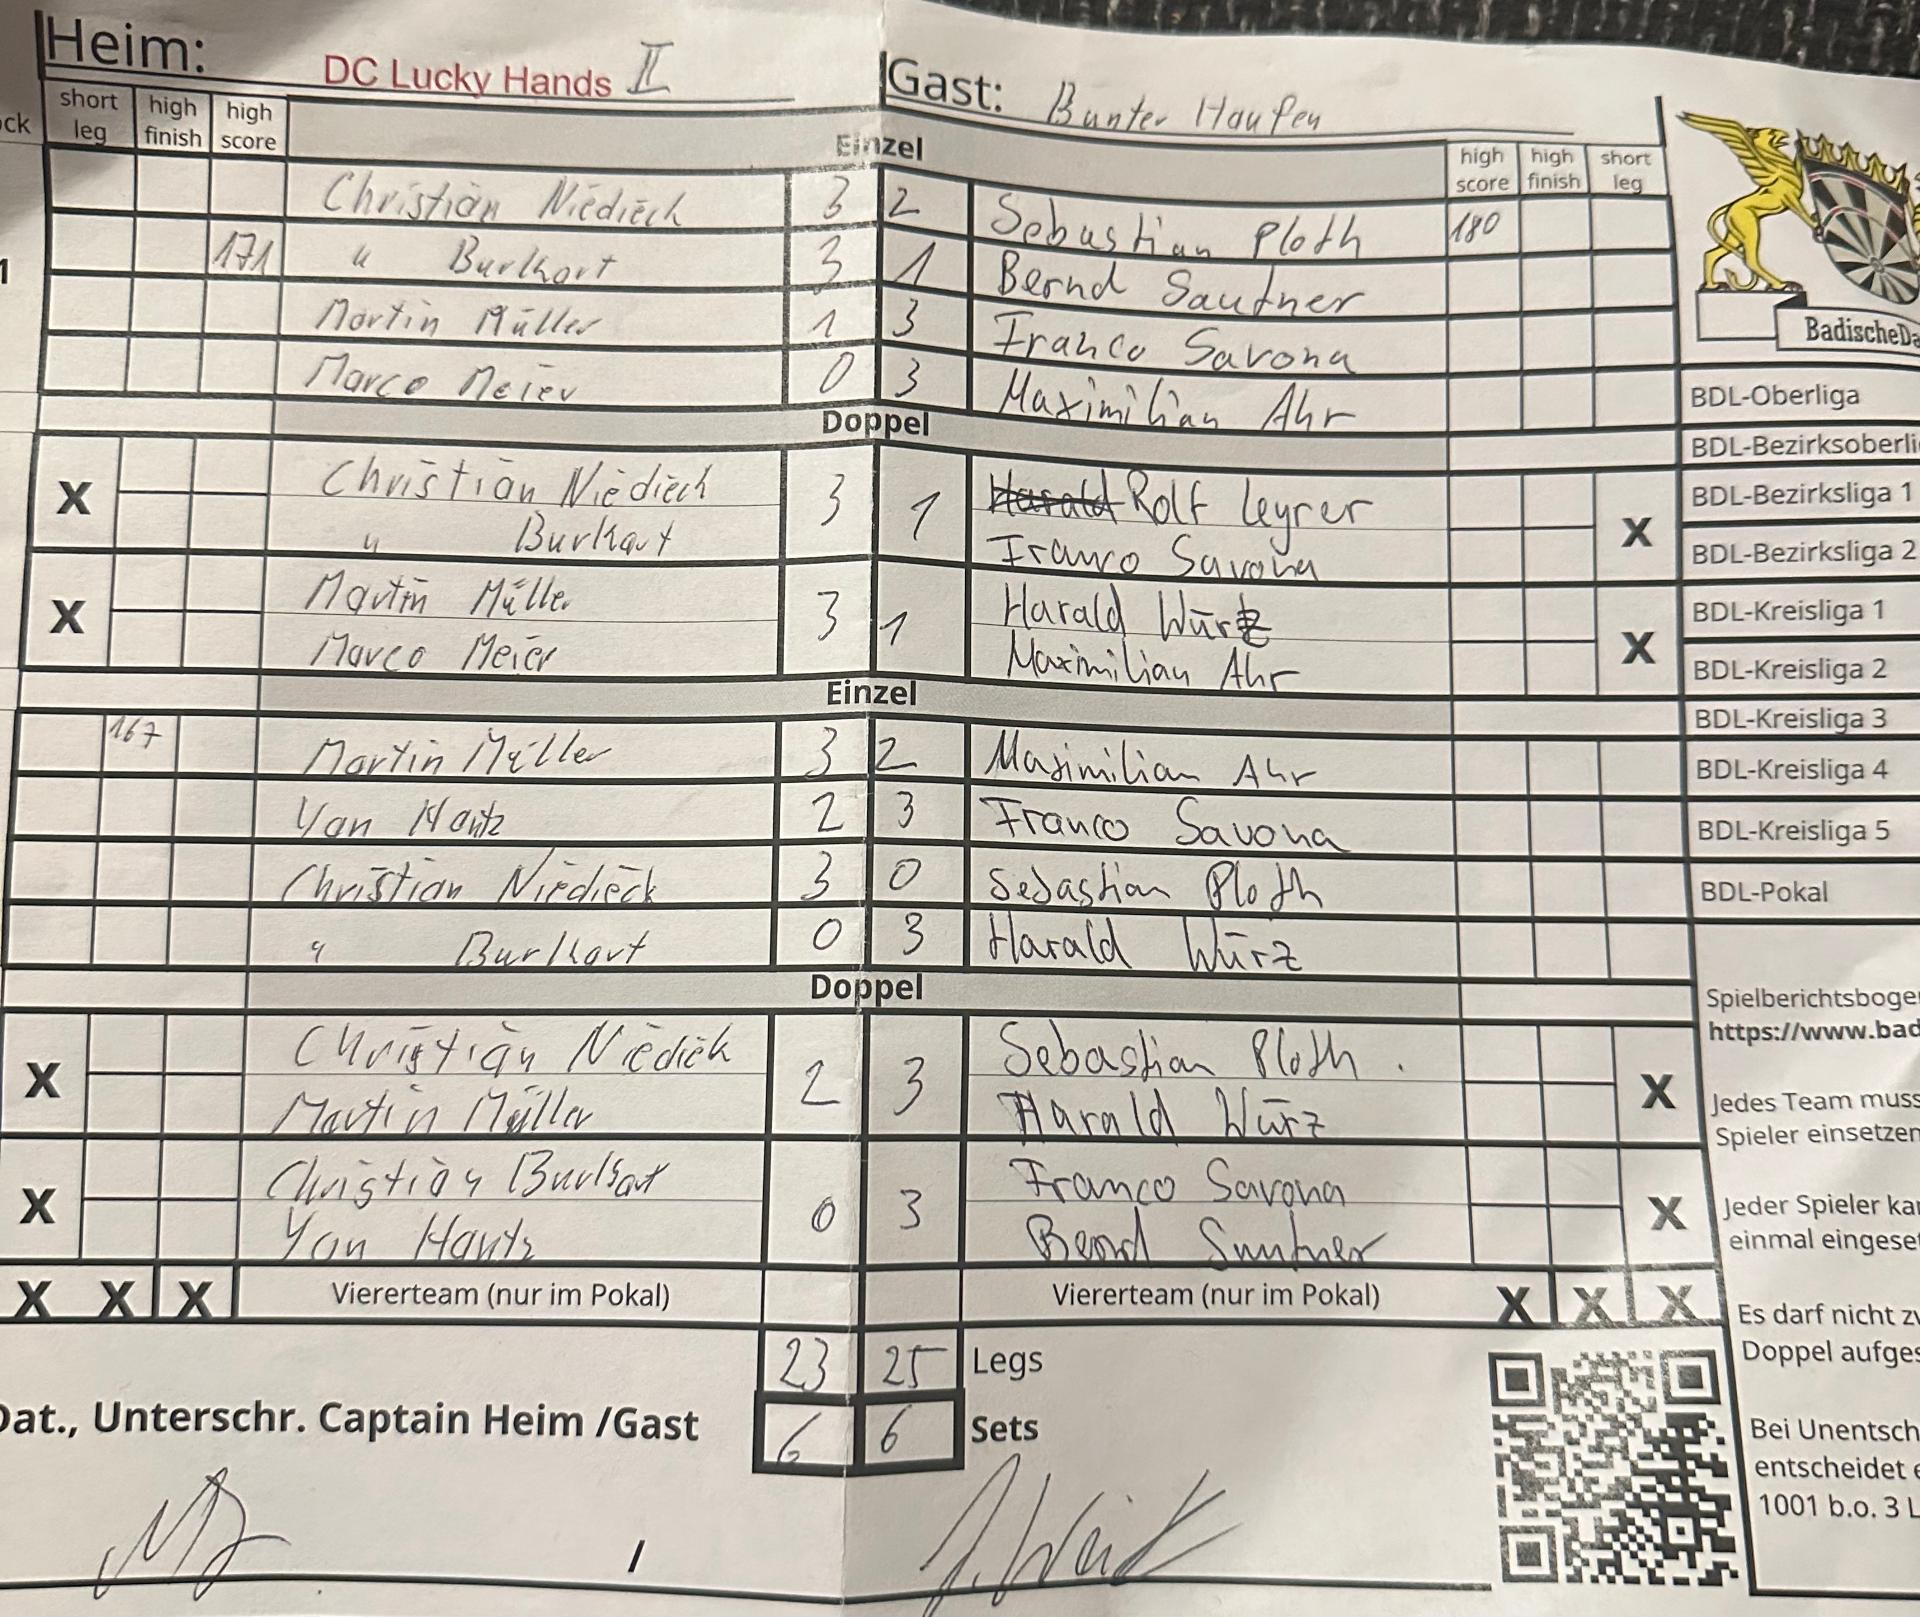 Heim: DC Lucky Hands II Gast: Bunter Haufen
ock short leg high finish high score Einzel high score high finish short leg
Christian Niedieck 3 2 Sebastian Ploth 180
1 171 " Burkhart 3 1 Bernd Sautner
Martin Müller 1 3 Franco Savona
Marco Meier 0 3 Maximilian Ahr
Doppel
X Christian Niedieck 3 1 Harald Rolf Leyrer X
" Burkhart Franco Savona
X Martin Müller 3 1 Harald Würz X
Marco Meier Maximilian Ahr
Einzel
167 Martin Müller 3 2 Maximilian Ahr
Yan Hantz 2 3 Franco Savona
Christian Niedieck 3 0 Sebastian Ploth
" Burkhart 0 3 Harald Würz
Doppel
X Christian Niedieck 2 3 Sebastian Ploth X
Martin Müller Harald Würz
X Christian Burkhart 0 3 Franco Savona X
Yan Hantz Bernd Sautner
X X X Viererteam (nur im Pokal) Viererteam (nur im Pokal) X X X
23 25 Legs
Dat., Unterschr. Captain Heim /Gast 6 6 Sets
/
BadischeDa
BDL-Oberliga
BDL-Bezirksoberli
BDL-Bezirksliga 1
BDL-Bezirksliga 2
BDL-Kreisliga 1
BDL-Kreisliga 2
BDL-Kreisliga 3
BDL-Kreisliga 4
BDL-Kreisliga 5
BDL-Pokal
Spielberichtsboge
https://www.bad
Jedes Team muss
Spieler einsetzen
Jeder Spieler ka
einmal eingese
Es darf nicht zw
Doppel aufges
Bei Unentsch
entscheidet e
1001 b.o. 3 L